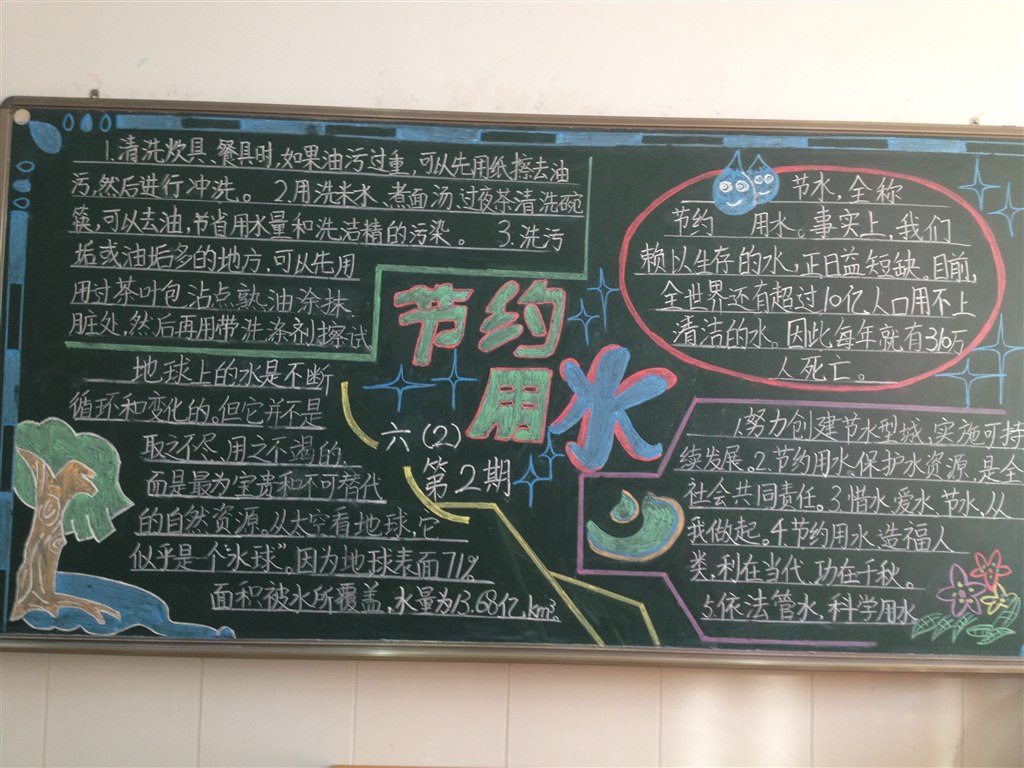 1.清洗炊具、餐具时,如果油污过重,可以先用纸擦去油
污,然后进行冲洗。 2.用洗米水、煮面汤、过夜茶清洗碗
筷,可以去油,节省用水量和洗洁精的污染。 3.洗污
垢或油垢多的地方,可以先用
用过茶叶包沾点熟油涂抹
脏处,然后再用带洗涤剂擦试
地球上的水是不断
循环和变化的。但它并不是
取之不尽,用之不竭的,
而是最为宝贵和不可替代
的自然资源,从太空看地球,它
似乎是个“水球”。因为地球表面71%
面积被水所覆盖,水量为13.68亿km³。
节约
用水
六(2)
第2期
节水,全称
节约 用水。事实上,我们
赖以生存的水,正日益短缺。目前,
全世界还有超过10亿人口用不上
清洁的水。因此每年就有310万
人死亡。
1.努力创建节水型城,实施可持
续发展。2.节约用水、保护水资源,是全
社会共同责任。3.惜水、爱水、节水,从
我做起。4.节约用水、造福人
类,利在当代,功在千秋。
5.依法管水,科学用水